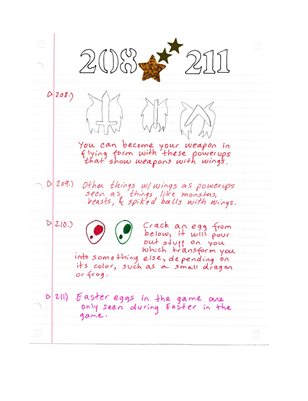 208 211
208.)
You can become your weapon in
flying form with these powerups
that show weapons with wings.
209.) Other things w/wings as powerups
seen as, things like monsters,
beasts, & spiked balls with wings.
210.) Crack an egg from
below, it will pour
out stuff on you
which transform you
into something else, depending on
its color, such as a small dragon
or frog.
211) Easter eggs in the game are
only seen during Easter in the
game.